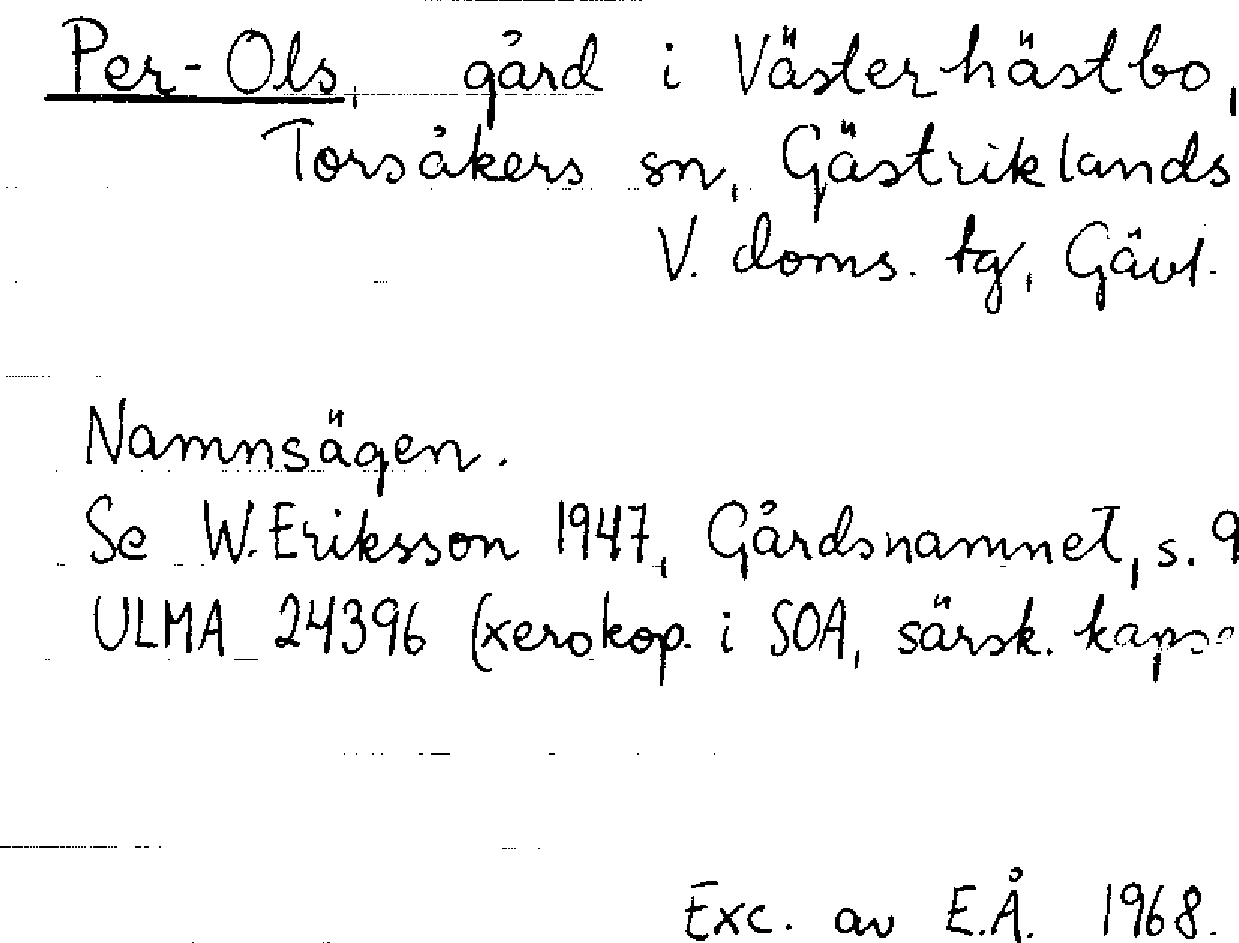 Per-Ols, gård i Västerhästbo,
Torsåkers sn, Gästriklands
V. doms. tg, Gävl.
Namnsägen.
Se W. Eriksson 1947, Gårdsnamnet, s. 9
ULMA 24396 (xerokop. i SOA, särsk.
Exc. av E.Å. 1968.